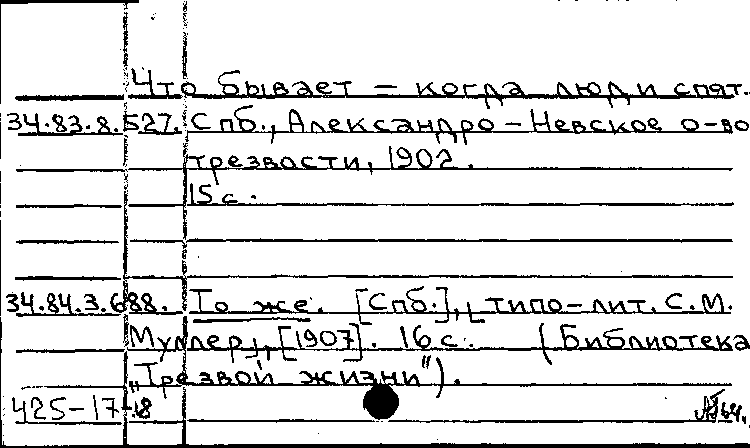 Что бывает – когда люди спят.
34.83.8.527. Спб., Александро-Невское о-во
трезвости, 1902.
15 с.
34.84.3.688. То же. [Спб.], типо-лит. С.М.
Муллер, [1907]. 16 с. (Библиотека
"Трезвой жизни").
425-17-18